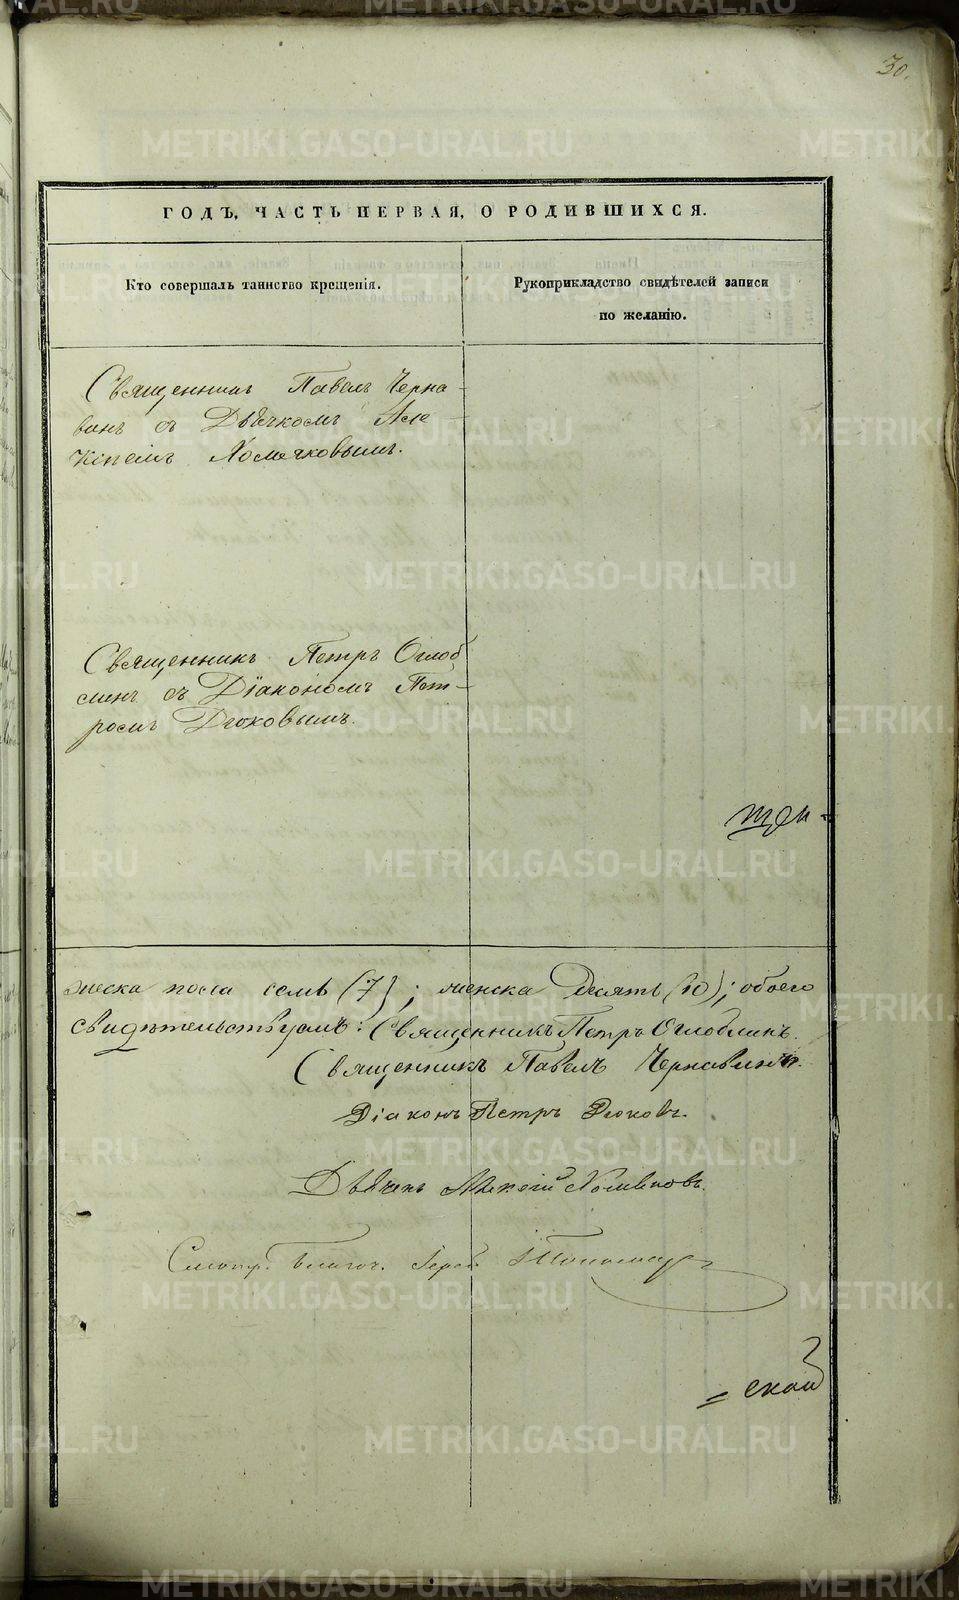 30.
ГОДЪ, ЧАСТЬ ПЕРВАЯ, О РОДИВШИХСЯ.
Кто совершалъ таинство крещенія.
Рукоприкладство свидѣтелей записи
по желанію.
Священникъ Павелъ Черна-
винъ съ Дьячкомъ Але-
ксіемъ Хомяковымъ.
Священникъ Петръ Оглоб-
линъ съ Діакономъ Пет-
ромъ Дюковымъ.
жеска пола семь (7); женска десять (10); обоего
свидѣтельствуемъ: Священникъ Петръ Оглоблинъ.
Священникъ Павелъ Чернавинъ.
Діаконъ Петръ Дюковъ.
Дьячекъ Алексій Хомяковъ.
Смотр. Благоч. Іерей
= ской
METRIKI.GASO-URAL.RU